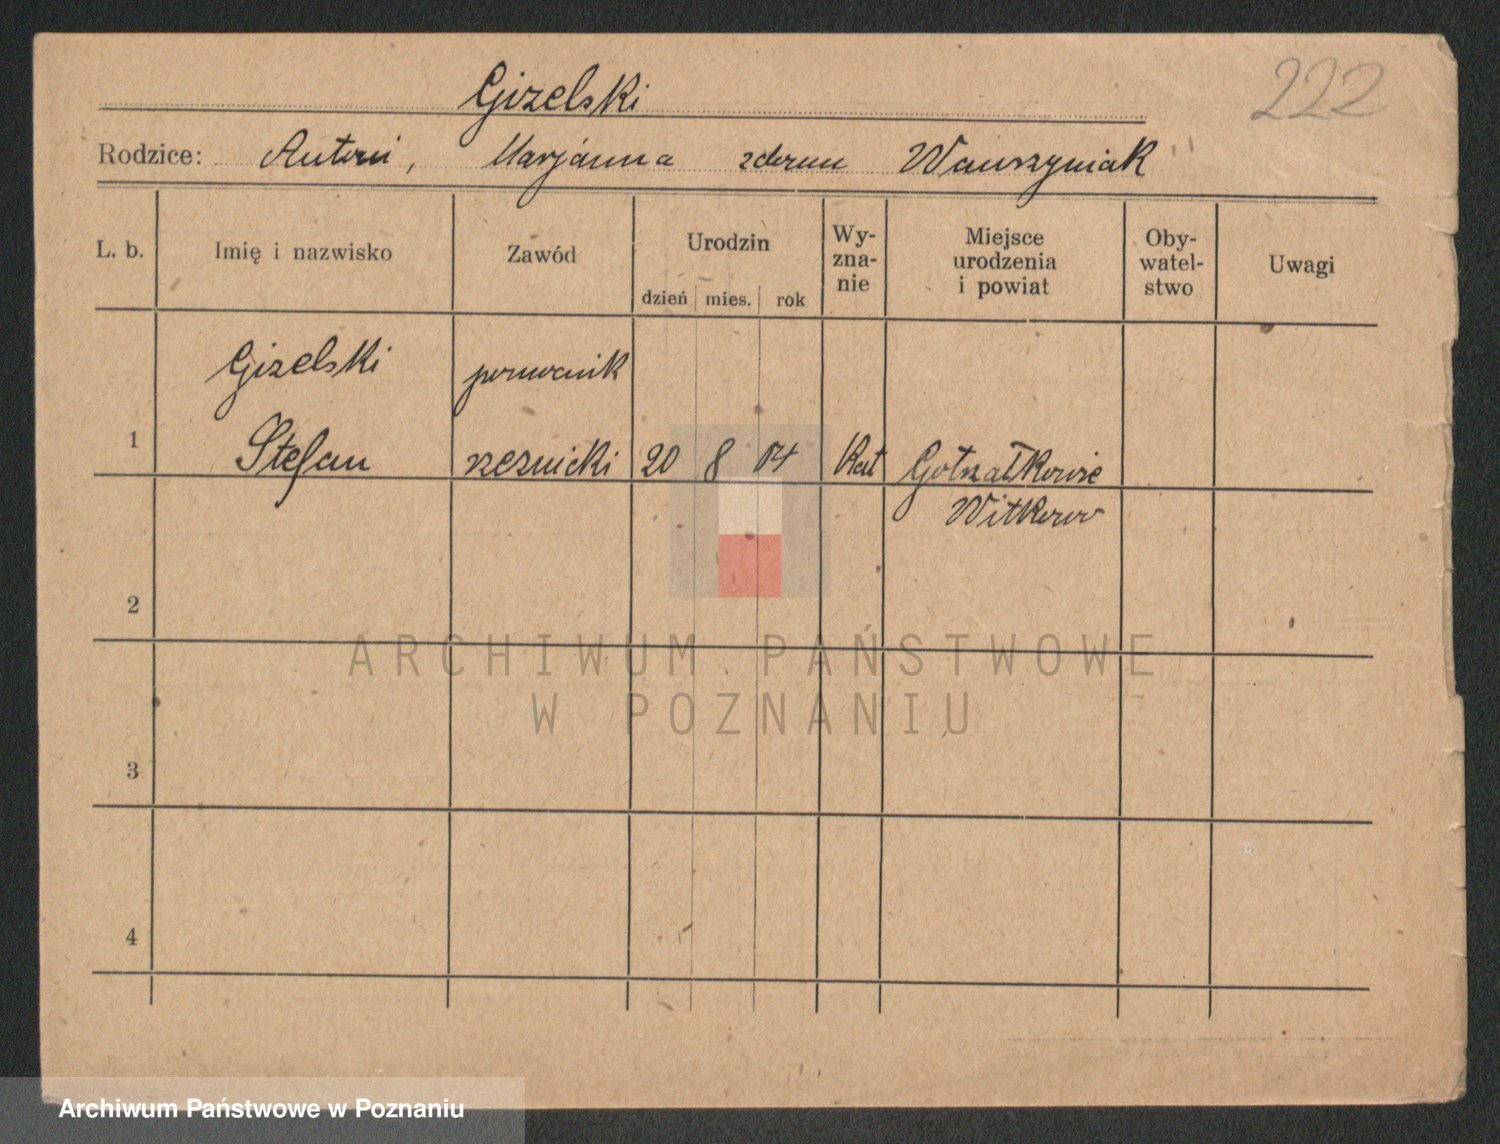 222
Gizelski
Rodzice: Antoni, Marjanna zdomu Wawrzyniak
L. b. Imię i nazwisko Zawód Urodzin dzień mies. rok Wy-zna-nie Miejsce urodzenia i powiat Oby-watel-stwo Uwagi
Gizelski
1 Stefan rzeznicki 20 8 04 Kat
Witkowo
2
3
4
ARCHIWUM PAŃSTWOWE
W POZNANIU
Archiwum Państwowe w Poznaniu